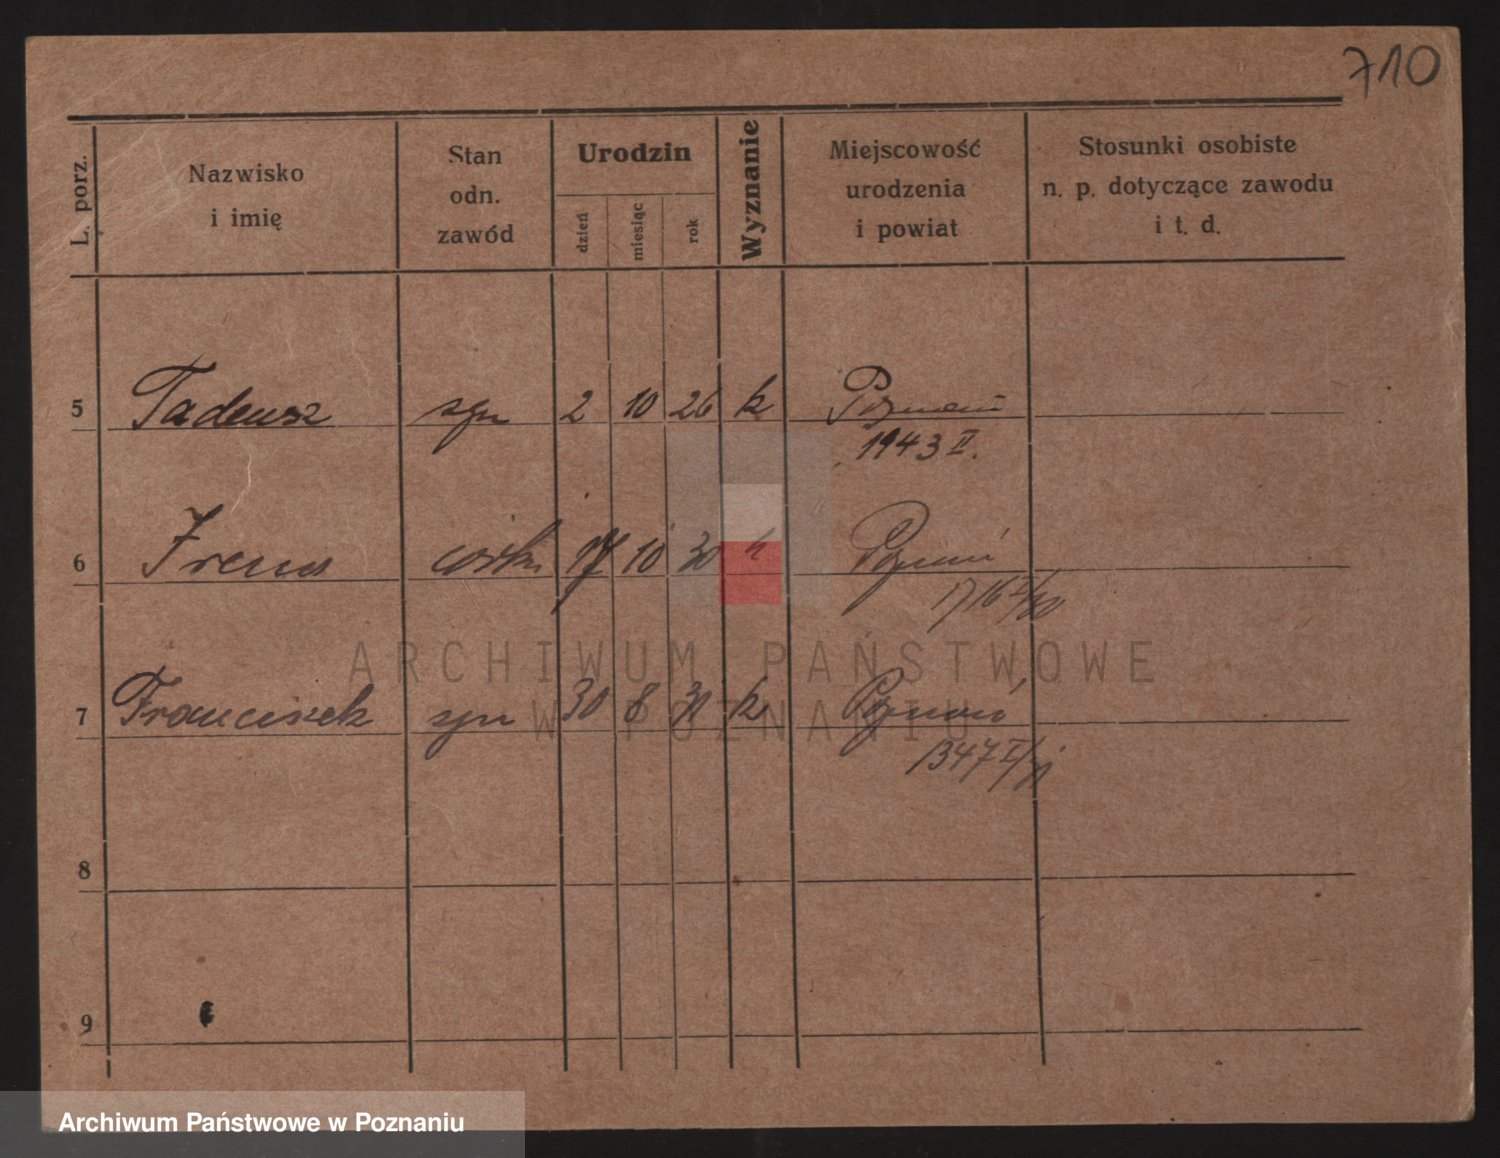 710
L. porz.
Nazwisko
i imię
Stan
odn.
zawód
Urodzin
dzień
miesiąc
rok
Wyznanie
Miejscowość
urodzenia
i powiat
Stosunki osobiste
n. p. dotyczące zawodu
i t. d.
5 Tadeusz syn 2 10 26 k Poznań
1943 II.
6 Irena córka 17 10 30 k Poznań
1716 I/30
7 Franciszek syn 30 8 31 k Poznań
1347 I/31
8
9
ARCHIWUM PAŃSTWOWE
W POZNANIU
Archiwum Państwowe w Poznaniu